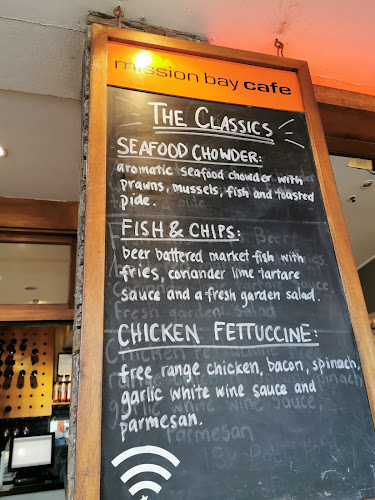 mission bay cafe
THE CLASSICS
SEAFOOD CHOWDER:
aromatic seafood chowder with
prawns, mussels, fish and toasted
pide.
FISH & CHIPS:
beer battered market fish with
fries, coriander lime tartare
sauce and a fresh garden salad.
CHICKEN FETTUCCINE:
free range chicken, bacon, spinach,
garlic white wine sauce and
parmesan.